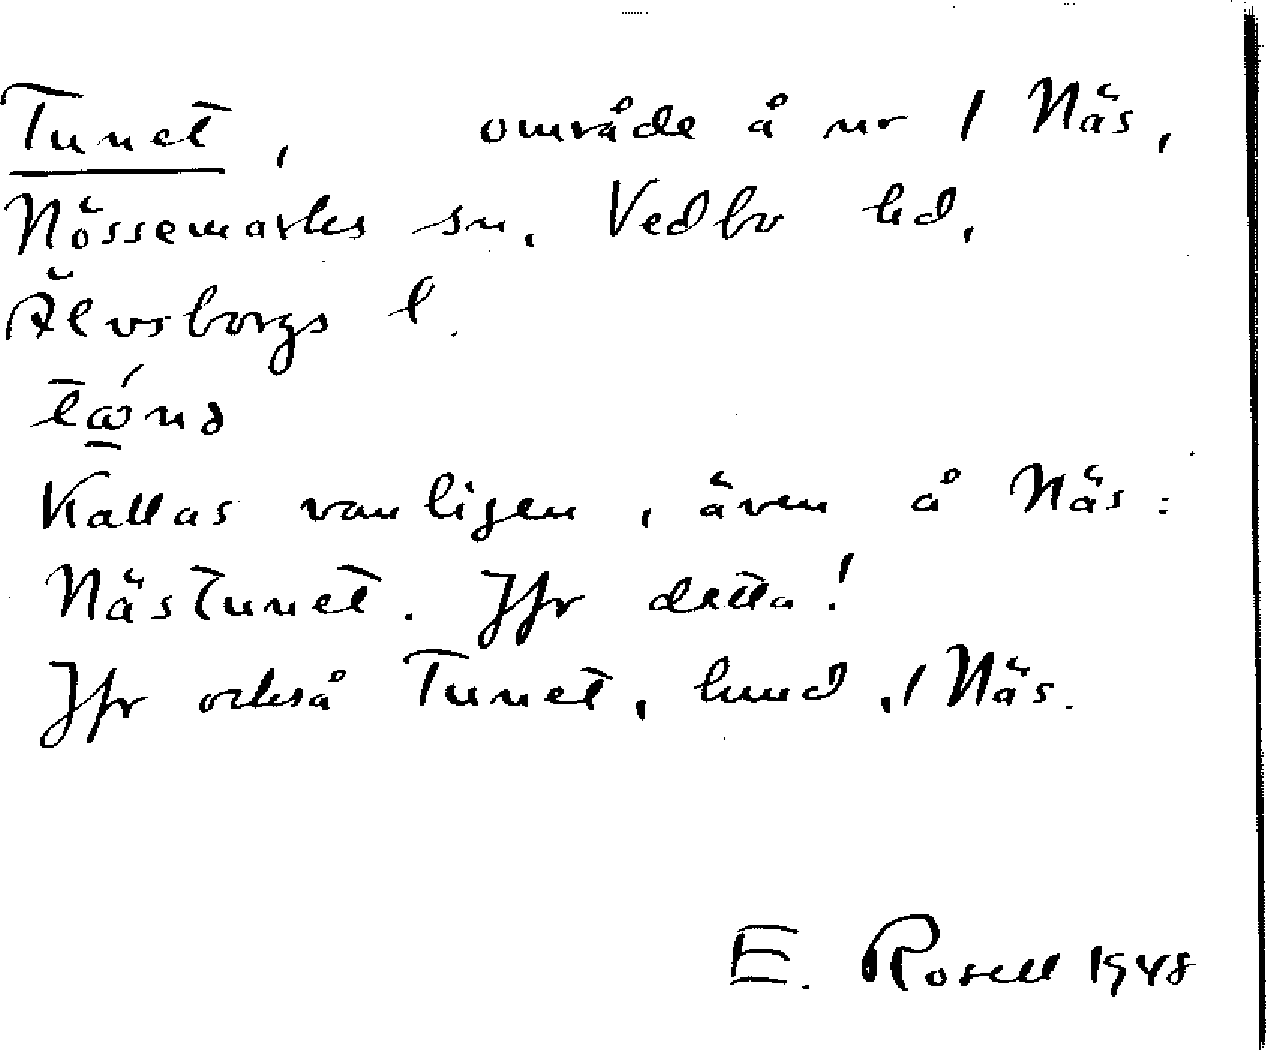 Tunet, område å nr 1 Näs,
Nössemarks sn. Vedbo hd,
Älvsborgs l.
Kallas vanligen, även å Näs:
Nästunet. Jfr detta!
Jfr också Tunet, hmd, 1 Näs.
E. Rosell 1948